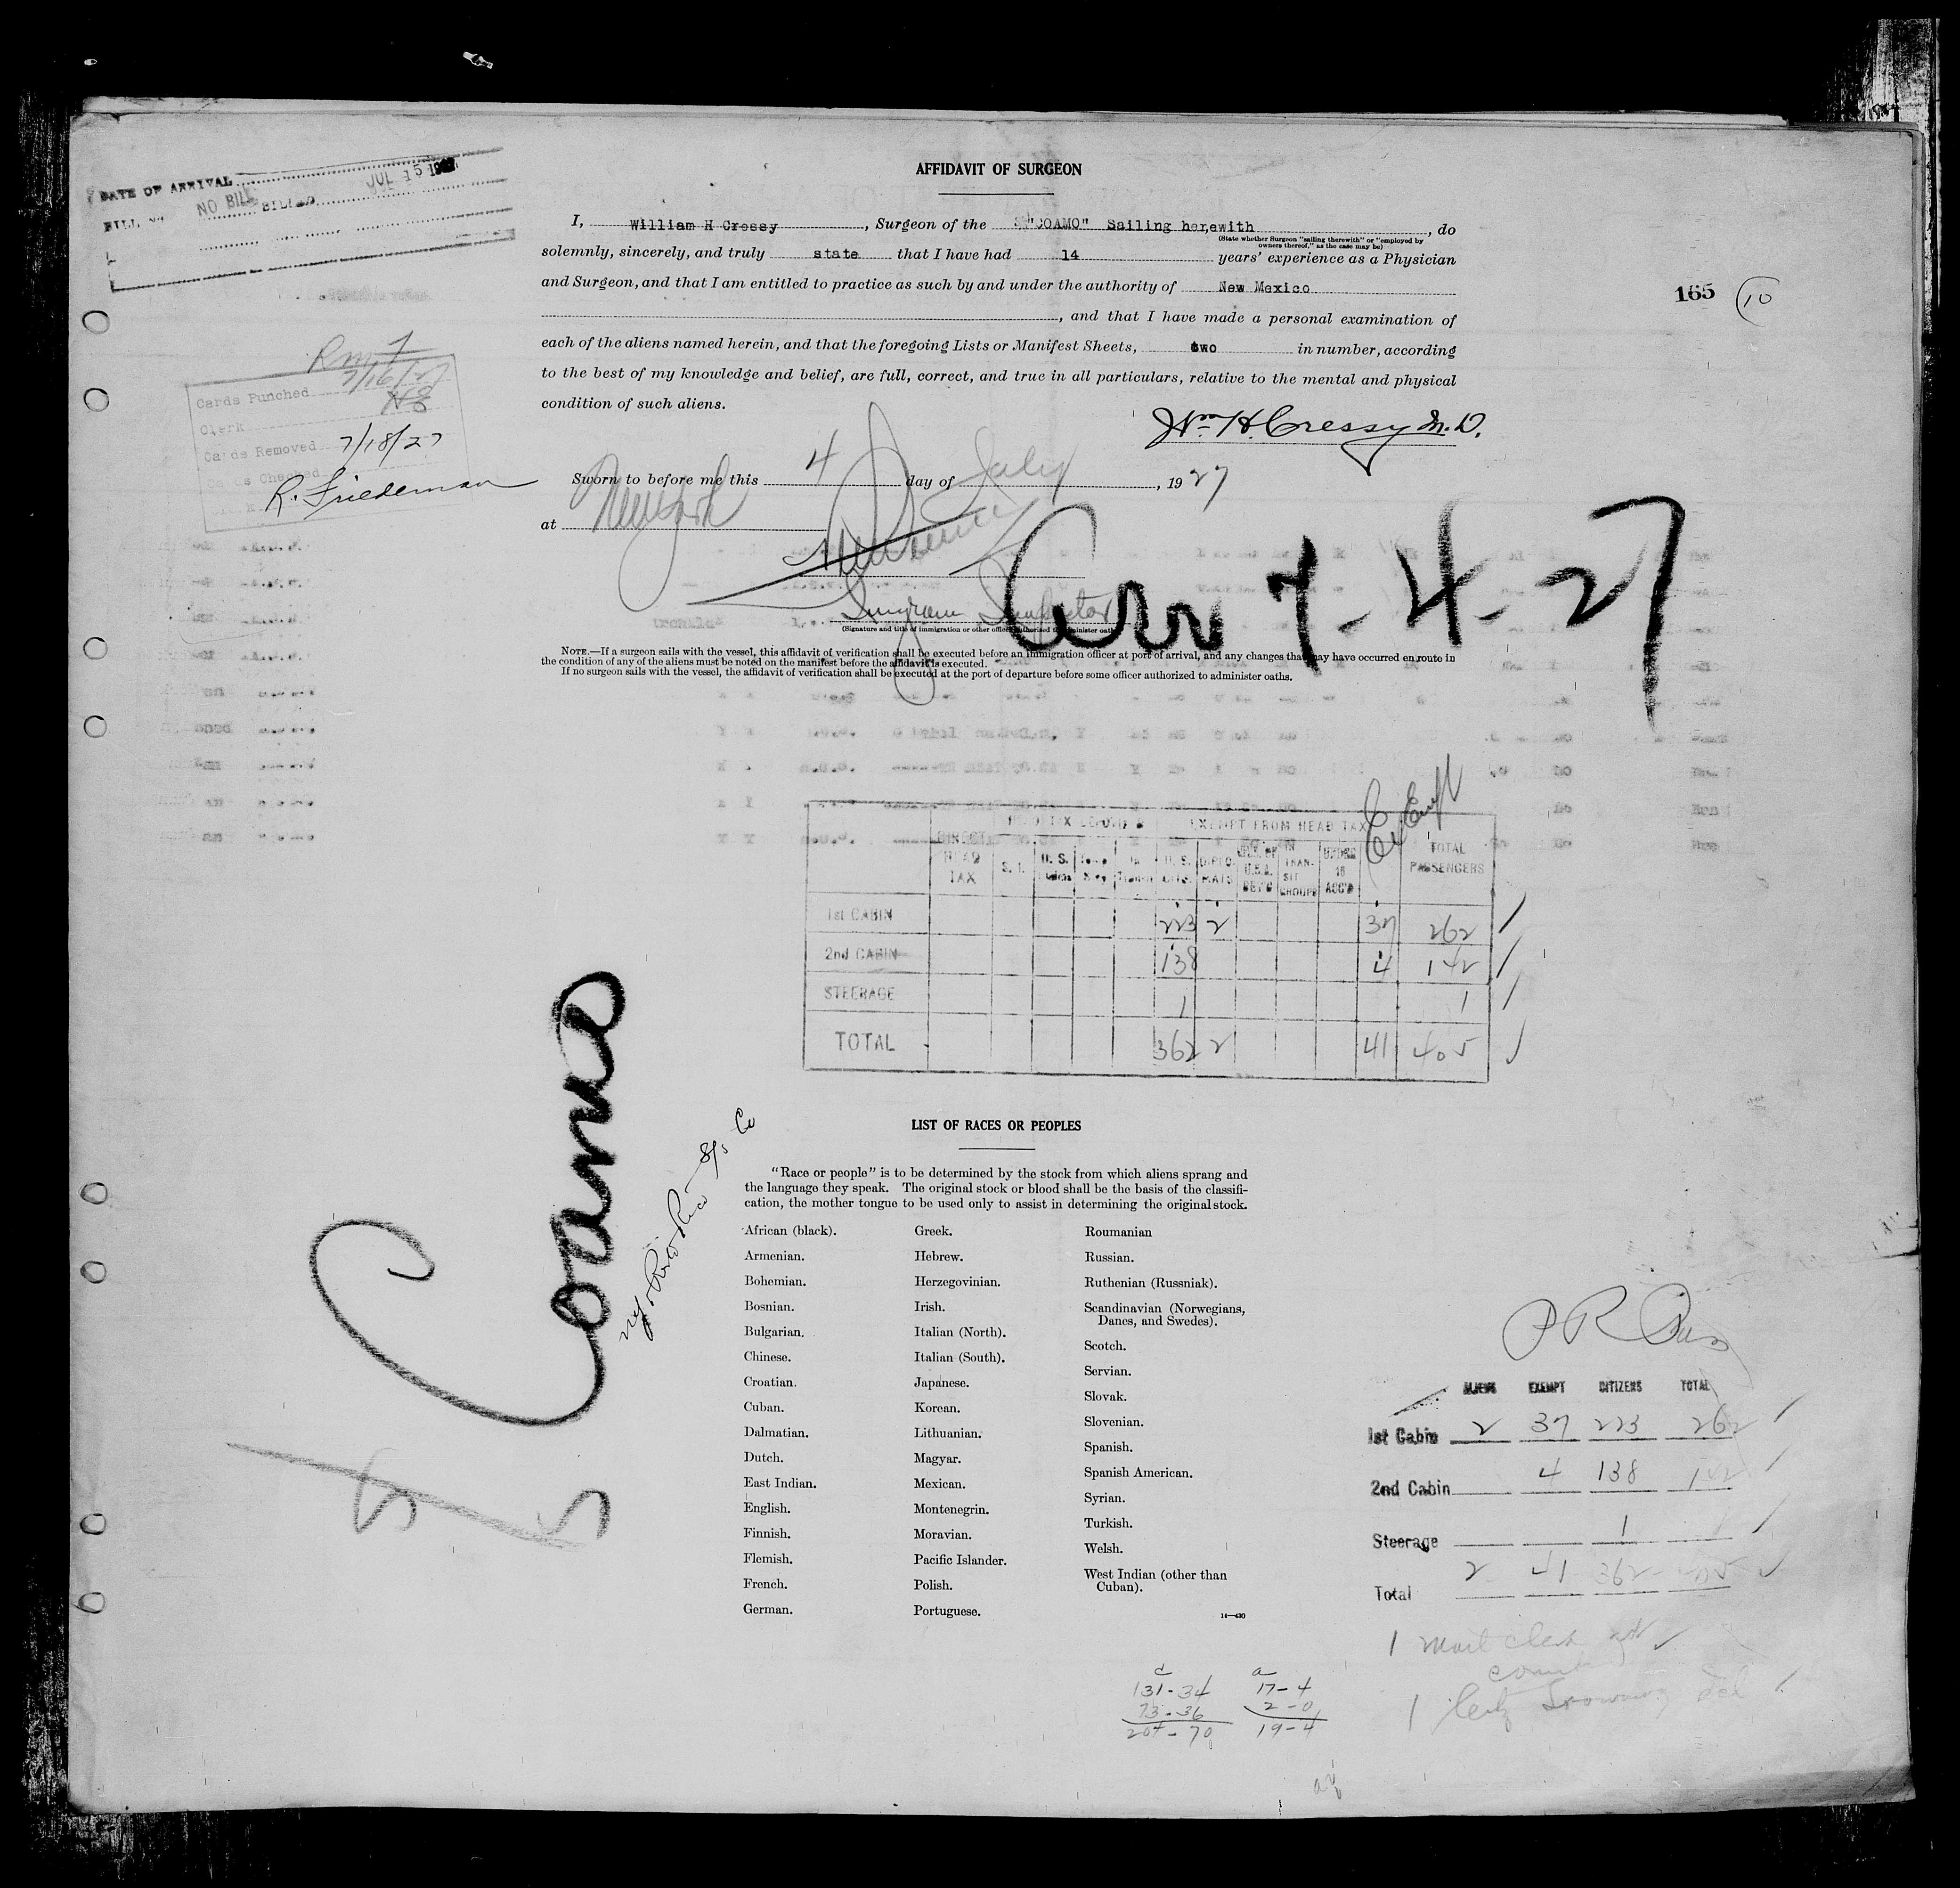 AFFIDAVIT OF SURGEON
DATE OF ARRIVAL JUL 15 1927
NO BILL
I, William H Cressy, Surgeon of the "COAMO" Sailing herewith, do
(State whether Surgeon "sailing therewith" or "employed by
owners thereof," as the case may be)
solemnly, sincerely, and truly state that I have had 14 years' experience as a Physician
and Surgeon, and that I am entitled to practice as such by and under the authority of New Mexico
, and that I have made a personal examination of
each of the aliens named herein, and that the foregoing Lists or Manifest Sheets, two in number, according
to the best of my knowledge and belief, are full, correct, and true in all particulars, relative to the mental and physical
condition of such aliens.
165 10
Cards Punched 7/16/27
Clerk
Cards Removed 7/18/27
Cards Checked
R. Friedeman
Wm. H. Cressy M.D.
Sworn to before me this 4 day of July, 1927
at New York
Immigrant Inspector
(Signature and title of immigration or other officer authorized to administer oaths)
Arr 7-4-27
NOTE.—If a surgeon sails with the vessel, this affidavit of verification shall be executed before an immigration officer at port of arrival, and any changes that may have occurred en route in
the condition of any of the aliens must be noted on the manifest before the affidavit is executed.
If no surgeon sails with the vessel, the affidavit of verification shall be executed at the port of departure before some officer authorized to administer oaths.
EXEMPT FROM HEAD TAX
HEAD TAX
S. I.
U. S.
U. S. CITS.
DIPLOMATS
IN TRANSIT GROUPS
UNDER 16 ACC'D
TOTAL PASSENGERS
1st CABIN 223 2 37 262
2nd CABIN 138 4 142
STEERAGE 1 1
TOTAL 362 2 41 405
SS Coamo
NY & Porto Rico S/S Co
LIST OF RACES OR PEOPLES
"Race or people" is to be determined by the stock from which aliens sprang and
the language they speak. The original stock or blood shall be the basis of the classifi-
cation, the mother tongue to be used only to assist in determining the original stock.
African (black).
Armenian.
Bohemian.
Bosnian.
Bulgarian.
Chinese.
Croatian.
Cuban.
Dalmatian.
Dutch.
East Indian.
English.
Finnish.
Flemish.
French.
German.
Greek.
Hebrew.
Herzegovinian.
Irish.
Italian (North).
Italian (South).
Japanese.
Korean.
Lithuanian.
Magyar.
Mexican.
Montenegrin.
Moravian.
Pacific Islander.
Polish.
Portuguese.
Roumanian
Russian.
Ruthenian (Russniak).
Scandinavian (Norwegians,
Danes, and Swedes).
Scotch.
Servian.
Slovak.
Slovenian.
Spanish.
Spanish American.
Syrian.
Turkish.
Welsh.
West Indian (other than
Cuban).
14—430
P R
ALIENS EXEMPT CITIZENS TOTAL
1st Cabin 2 37 223 262
2nd Cabin 4 138 142
Steerage 1 1
Total 2 41 362 405
1 Mail clerk not
count
1
c a
131-34 17-4
73-36 2-0
204-70 19-4